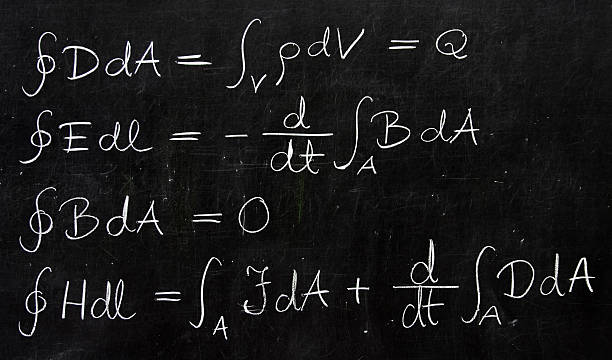 ∮DdA = ∫_V ρdV = Q
∮Edl = - d/dt ∫_A BdA
∮BdA = 0
∮Hdl = ∫_A JdA + d/dt ∫_A DdA